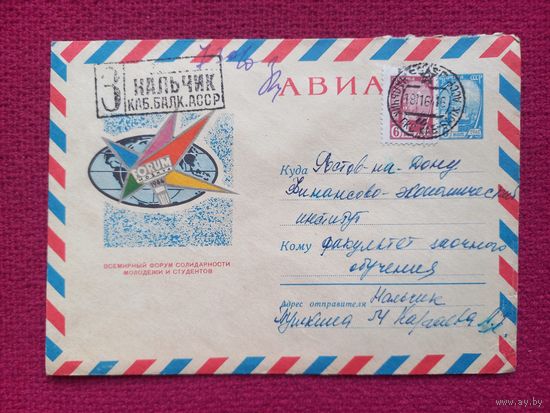 З НАЛЬЧИК
КАБ.БАЛК.АССР
АВИА
FORUM
1964
ВСЕМИРНЫЙ ФОРУМ СОЛИДАРНОСТИ
МОЛОДЕЖИ И СТУДЕНТОВ
Куда Ростов-на-Дону
Финансово-экономический
институт
Кому факультет заочного
обучения
Адрес отправителя Нальчик
Пушкина
www.ay.by